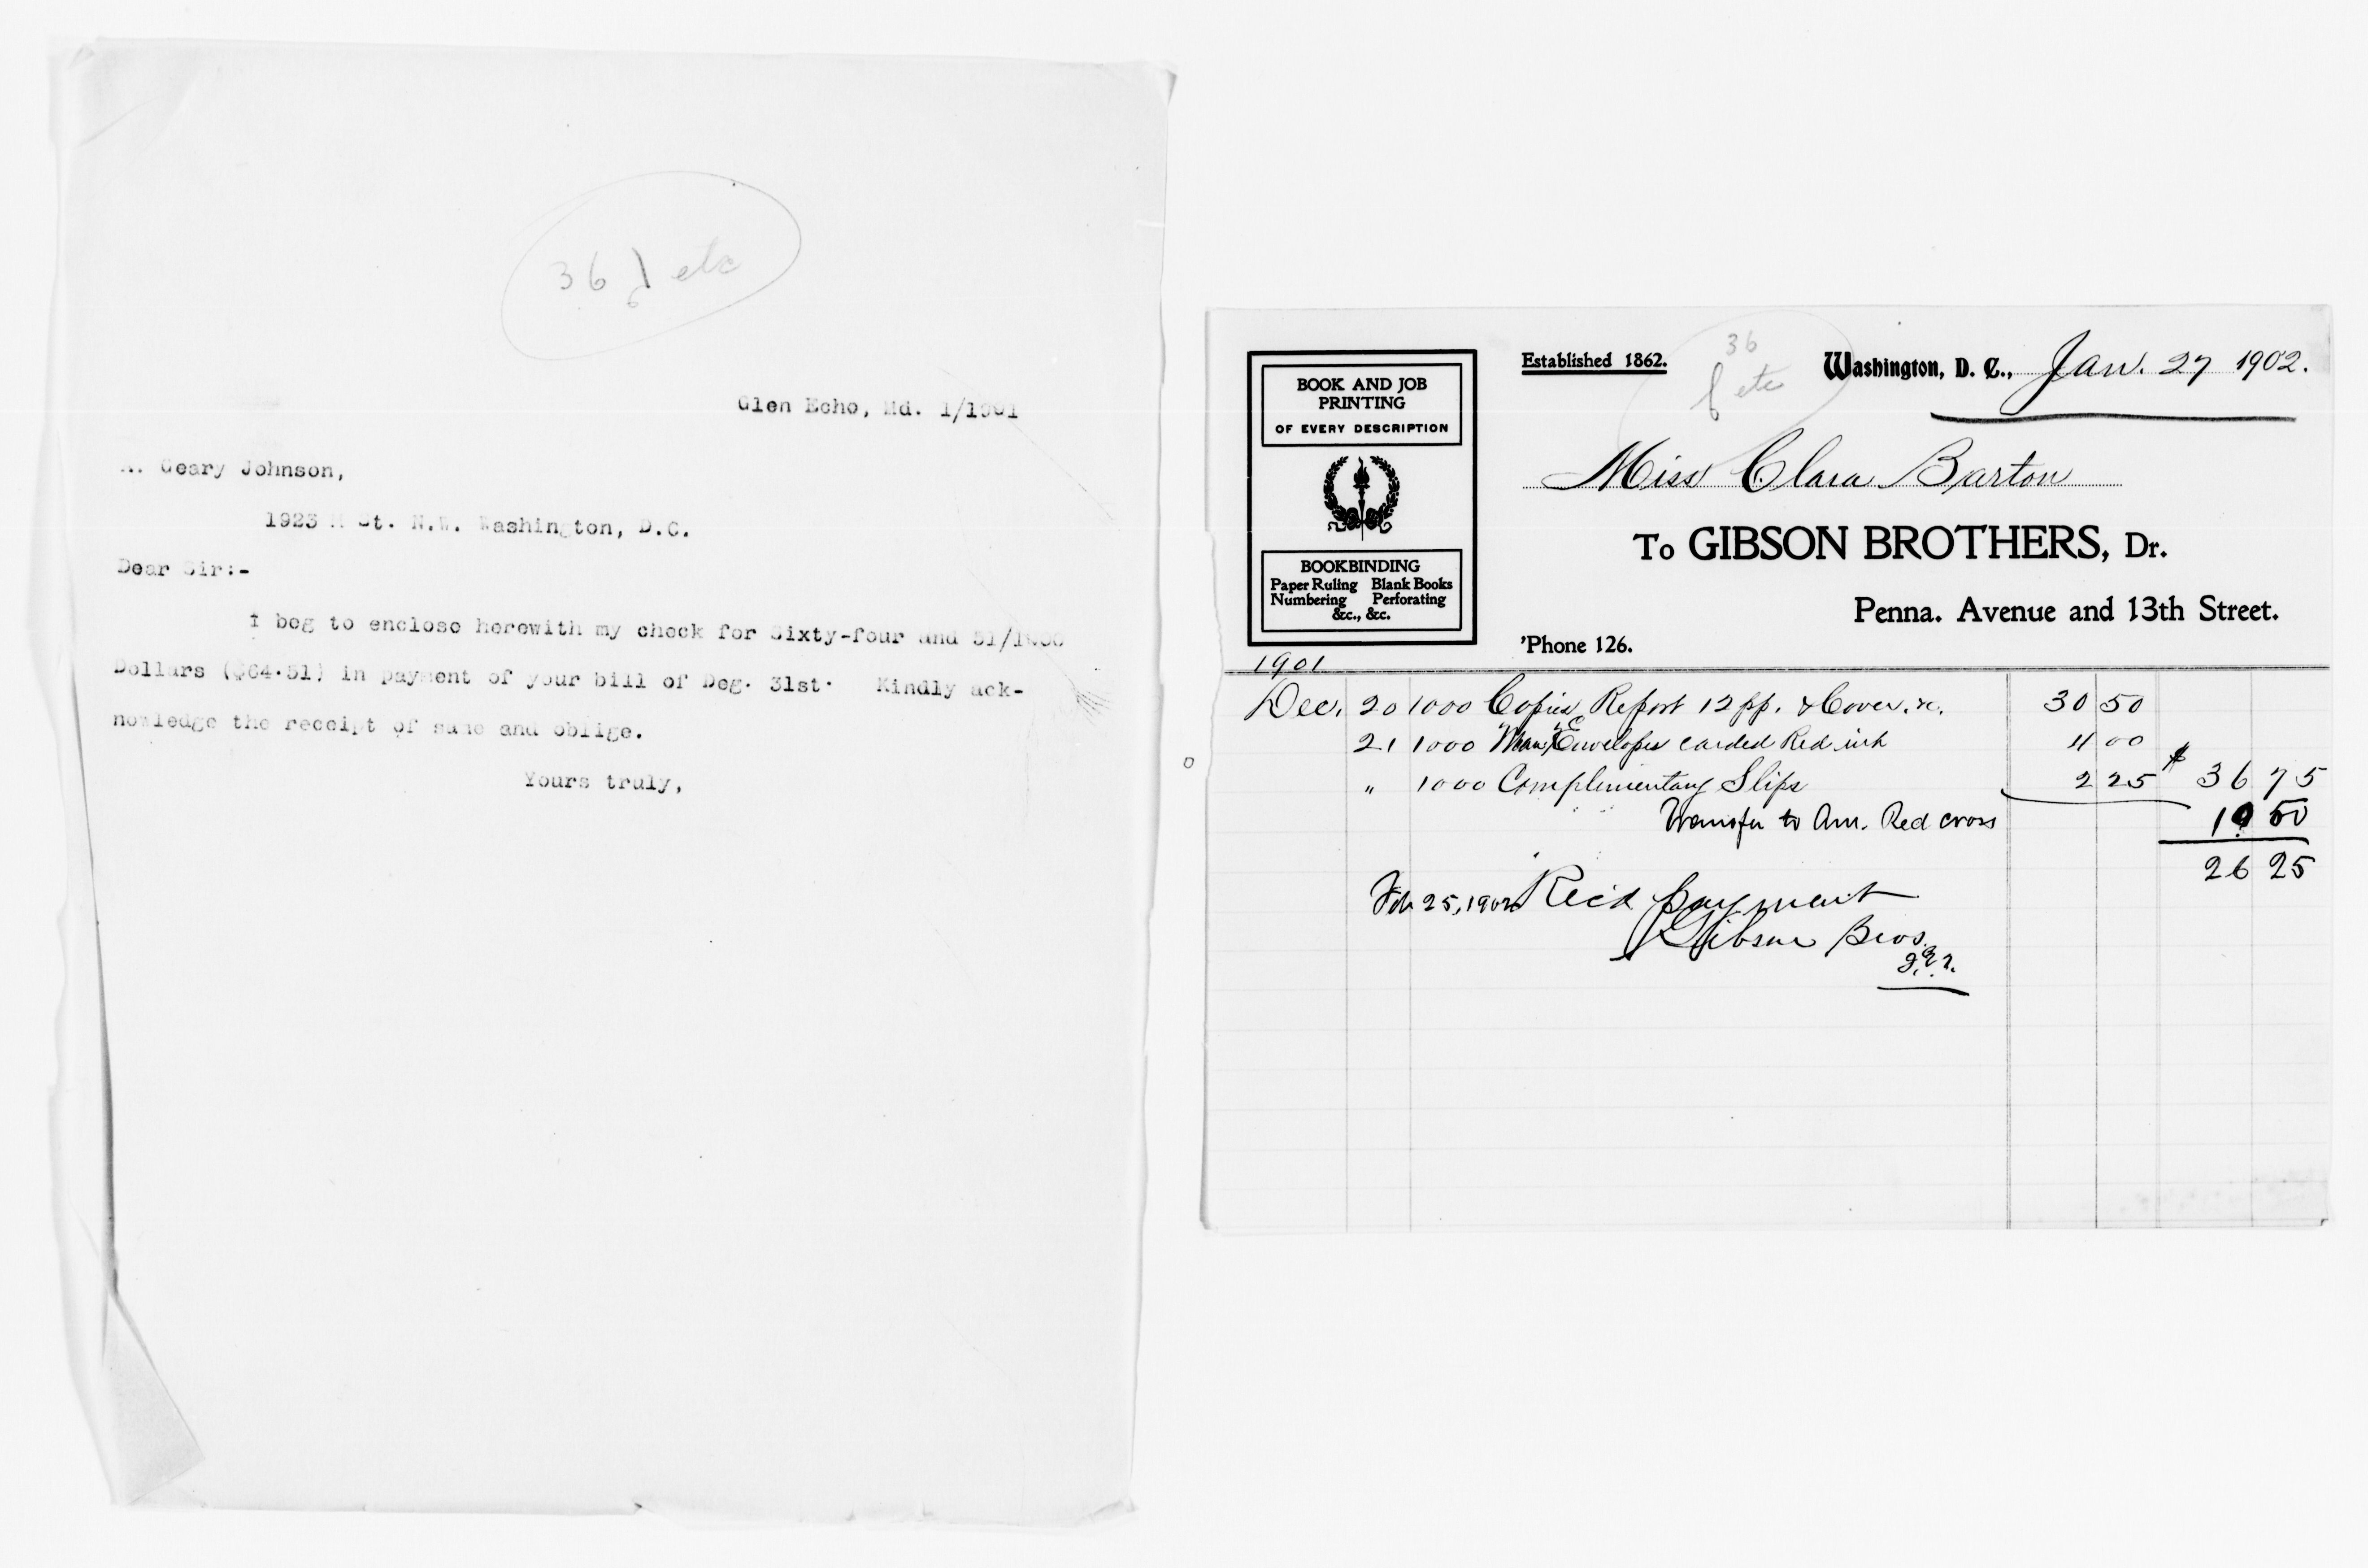 36 etc
Glen Echo, Md. 1/1901
Geary Johnson,
1923 St. N.W. Washington, D.C.
Dear Sir:-
I beg to enclose herewith my check for Sixty-four and 51/1000
Dollars ($64.51) in payment of your bill of Deg. 31st. Kindly ack-
nowledge the receipt of same and oblige.
Yours truly,
BOOK AND JOB
PRINTING
OF EVERY DESCRIPTION
BOOKBINDING
Paper Ruling Blank Books
Numbering Perforating
&c., &c.
Established 1862.
36
etc
Washington, D. C., Jan. 27 1902.
Miss Clara Barton
To GIBSON BROTHERS, Dr.
Penna. Avenue and 13th Street.
'Phone 126.
1901
Dec. 20 1000 Copies Report 12 pp. & Cover. &c. 30 50
21 1000 Envelopes carded Red ink 4 00
" 1000 Complimentary Slips 2 25 $ 36 75
Transfer to Am. Red cross 10 50
26 25
Feb 25, 1902 Recd payment
Gibson Bros.